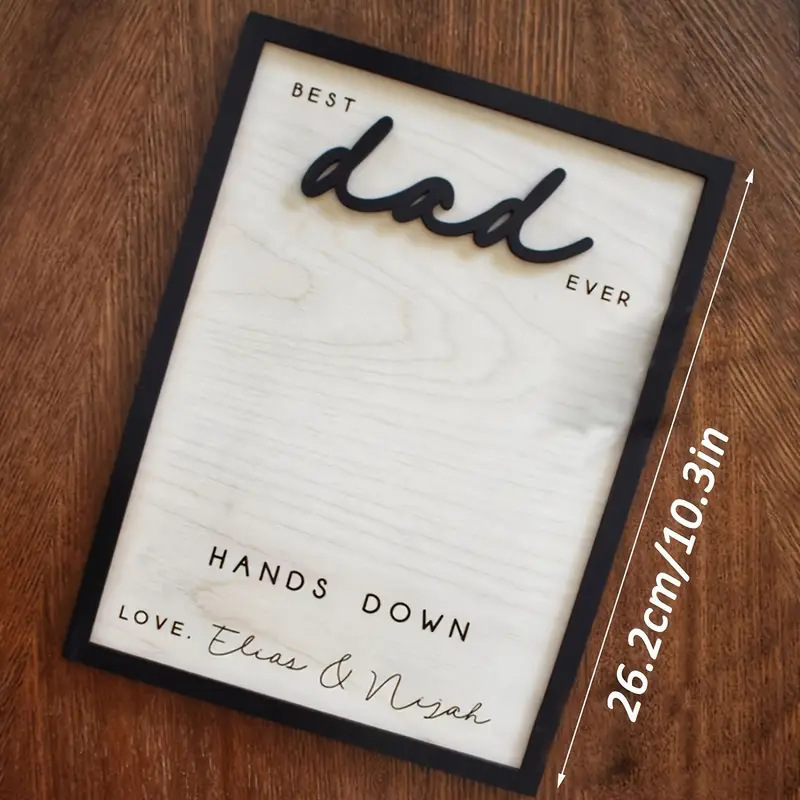 BEST
dad
EVER
HANDS DOWN
LOVE. Elias & Nijah
26.2cm/10.3in